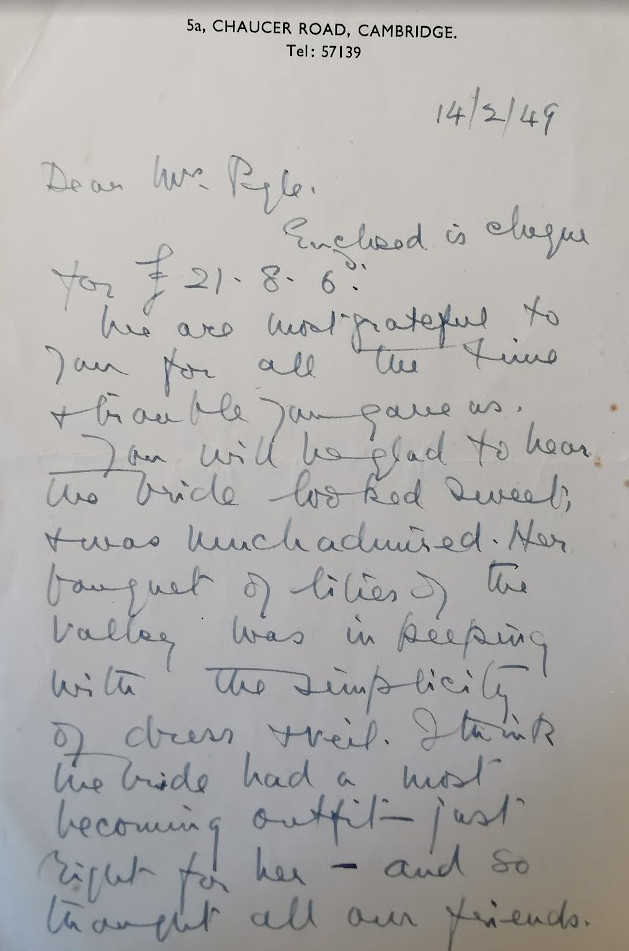 5a, CHAUCER ROAD, CAMBRIDGE.
Tel: 57139
14/2/49
Dear Mrs. Pyle.
Enclosed is cheque
for £ 21-8-6d:
We are most grateful to
you for all the time
& trouble you gave us.
You will be glad to hear
the bride looked sweet,
& was much admired. Her
bouquet of lilies of the
valley was in keeping
with the simplicity
of dress & veil. I think
the bride had a most
becoming outfit – just
right for her – and so
thought all our friends.